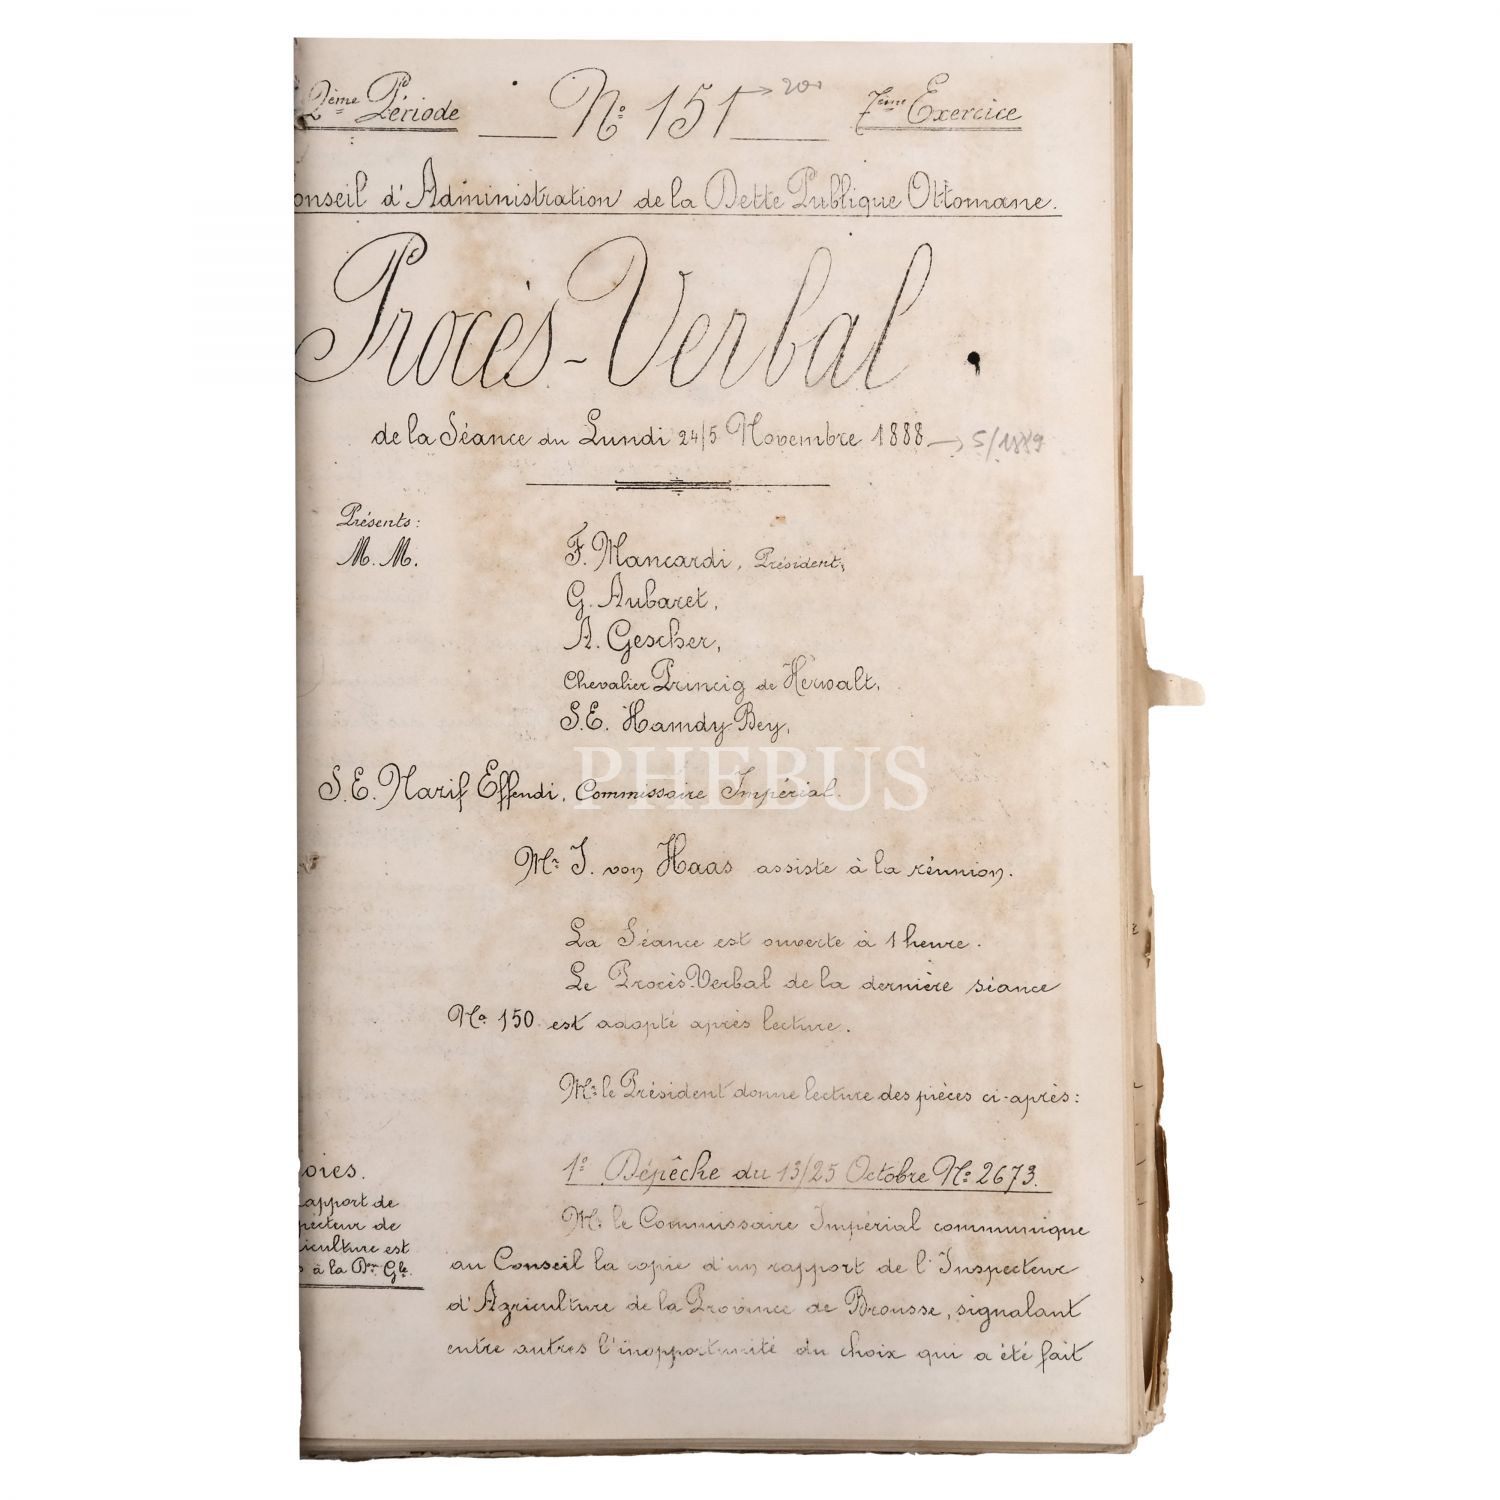 2ème Période N° 151 → 200 7ème Exercice
onseil d'Administration de la Dette Publique Ottomane.
Procès-Verbal
de la Séance du Lundi 24/5 Novembre 1888 → 5/1889
Présents:
M.M. F. Mancardi, Président,
G. Aubaret,
A. Gescher,
Chevalier Princig de Herwalt,
S.E. Hamdy Bey,
PHEBUS
S.E. Nazif Effendi, Commissaire Impérial.
Mr J. von Haas assiste à la réunion.
La Séance est ouverte à 1 heure.
Le Procès-Verbal de la dernière séance
No 150 est adopté après lecture.
Mr le Président donne lecture des pièces ci-après:
oies.
apport de
pecteur de
iculture est
à la Don Gle.
1° Dépêche du 13/25 Octobre N° 2673.
Mr le Commissaire Impérial communique
au Conseil la copie d'un rapport de l'Inspecteur
d'Agriculture de la Province de Brousse, signalant
entre autres l'inopportunité du choix qui a été fait